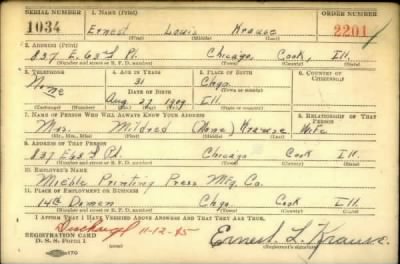 SERIAL NUMBER 1. NAME (Print) ORDER NUMBER
1034 Ernest Louis Krause 2201
(First) (Middle) (Last)
2. ADDRESS (Print)
837 E. 63rd Pl. Chicago, Cook, Ill.
(Number and street or R. F. D. number) (Town) (County) (State)
3. TELEPHONE 4. AGE IN YEARS 5. PLACE OF BIRTH 6. COUNTRY OF CITIZENSHIP
None 31 Chgo.
DATE OF BIRTH (Town or county)
Aug 27 1909 Ill.
(Exchange) (Number) (Mo.) (Day) (Yr.) (State or country)
7. NAME OF PERSON WHO WILL ALWAYS KNOW YOUR ADDRESS 8. RELATIONSHIP OF THAT PERSON
Mrs. Mildred (None) Krause Wife
(Mr., Mrs., Miss) (First) (Middle) (Last)
9. ADDRESS OF THAT PERSON
837 E 63rd Pl. Chicago Cook Ill
(Number and street or R. F. D. number) (Town) (County) (State)
10. EMPLOYER'S NAME
Miehle Printing Press Mfg. Co.
11. PLACE OF EMPLOYMENT OR BUSINESS
14th Damen Chgo. Cook Ill.
(Number and street or R. F. D. number) (Town) (County) (State)
I AFFIRM THAT I HAVE VERIFIED ABOVE ANSWERS AND THAT THEY ARE TRUE.
Discharged 11-12-45
REGISTRATION CARD
D. S. S. Form 1 Ernest L. Krause
(Registrant's signature)